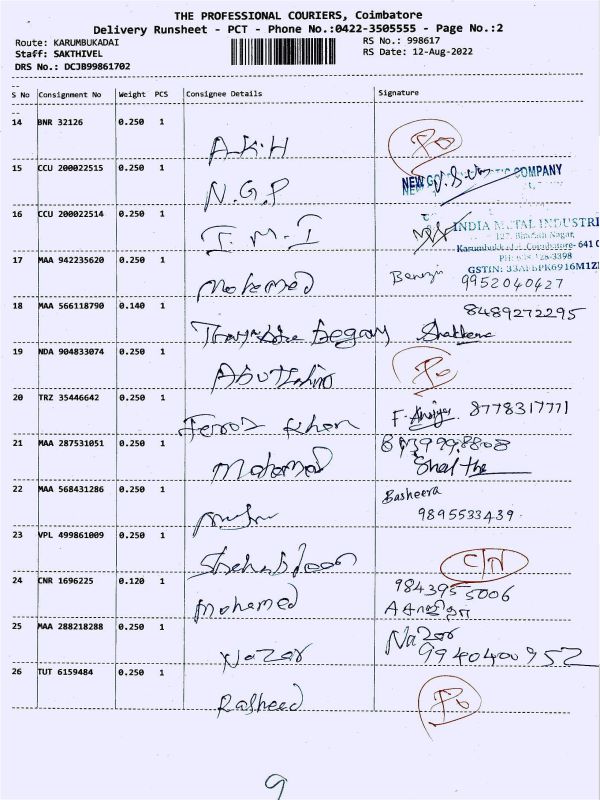 THE PROFESSIONAL COURIERS, Coimbatore
Delivery Runsheet - PCT - Phone No.:0422-3505555 - Page No.:2
Route: KARUMBUKADAI
Staff: SAKTHIVEL
DRS No.: DCJB99861702
RS No.: 998617
RS Date: 12-Aug-2022
S No Consignment No Weight PCS Consignee Details Signature
14 BNR 32126 0.250 1
A.K.H
15 CCU 200022515 0.250 1
N.G.P
NEW COMPANY
16 CCU 200022514 0.250 1
I.M.I
INDIA METAL INDUSTRI
Karumbukkadai, Coimbatore- 641 0
17 MAA 942235620 0.250 1
Mohamed
9952040427
18 MAA 566118790 0.140 1
8489272295
19 NDA 904833074 0.250 1
20 TRZ 35446642 0.250 1
Feroz Khan
8778317771
21 MAA 287531051 0.250 1
Mohamed
22 MAA 568431286 0.250 1
Basheera
9895533439
23 VPL 499861009 0.250 1
24 CNR 1696225 0.120 1
Mohamed
9843955006
25 MAA 288218288 0.250 1
Nazar
Nazar
9940400952
26 TUT 6159484 0.250 1
Rasheed
9